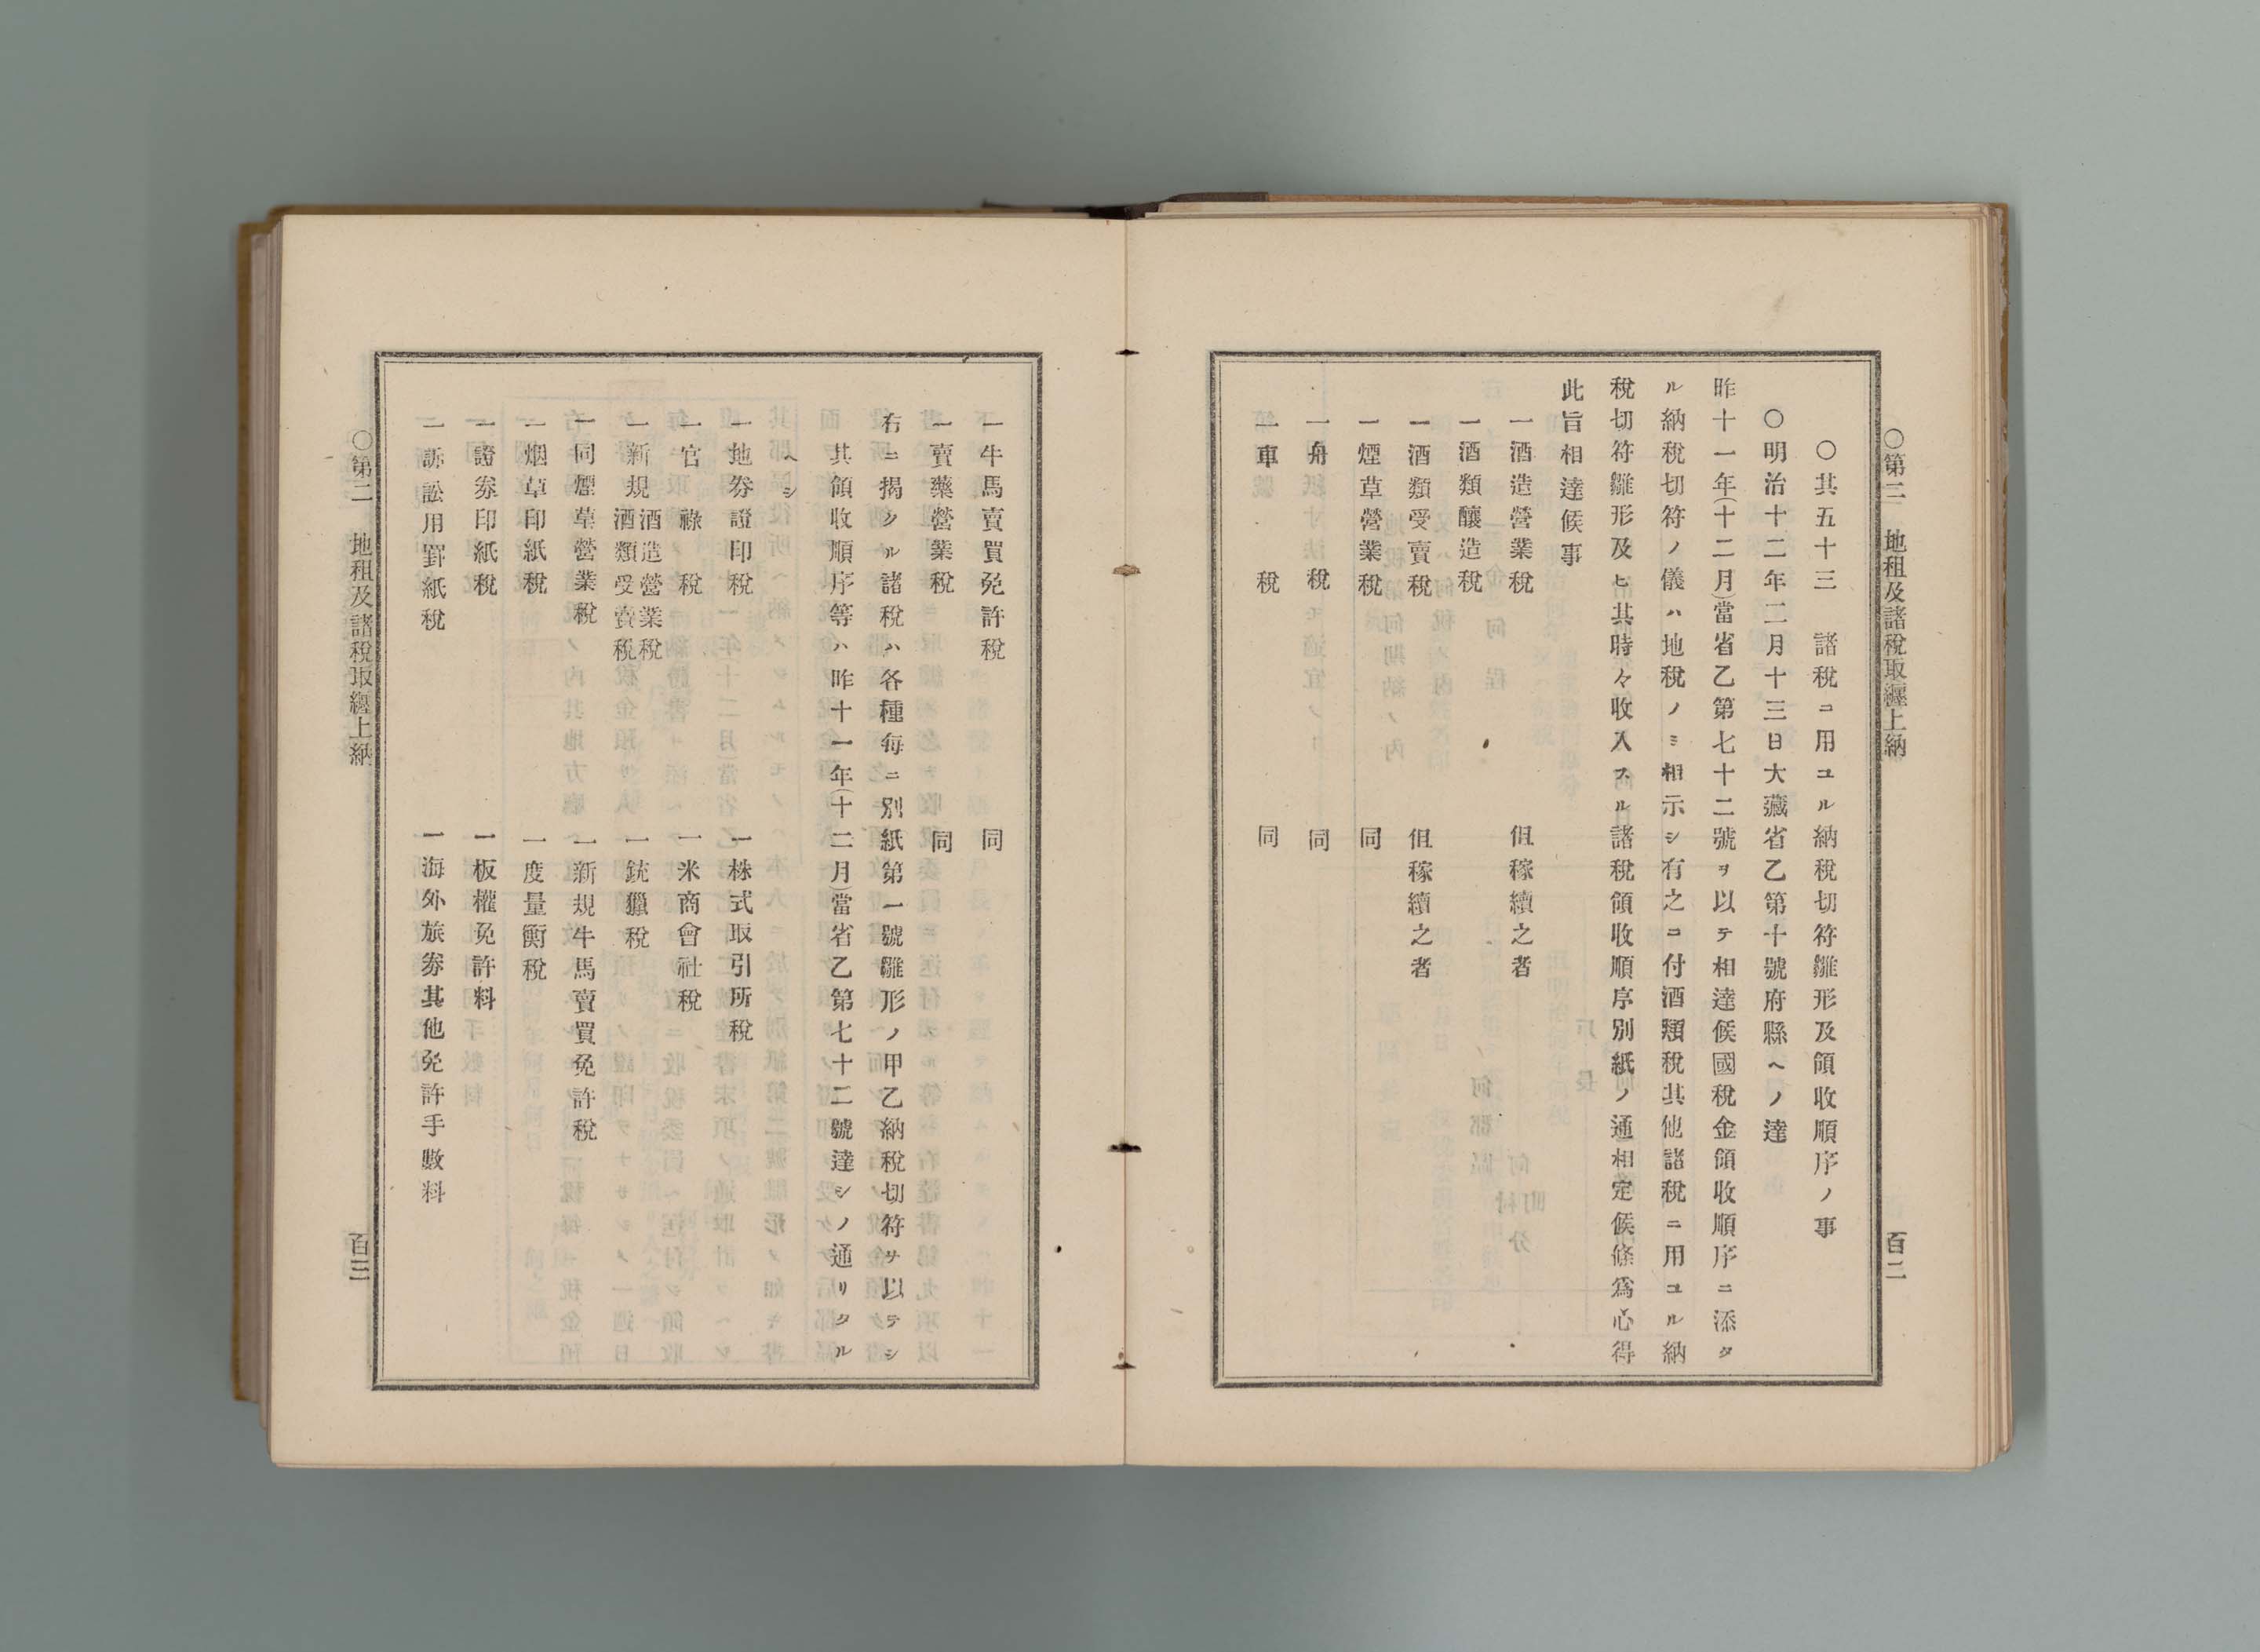 ○第二　地租及諸税取纒上納
百二
○其五十三　諸税ニ用ユル納税切符雛形及領收順序ノ事
○明治十二年二月十三日大藏省乙第十號府縣ヘノ達
昨十一年(十二月)當省乙第七十二號ヲ以テ相達候國税金領收順序ニ添タ
ル納税切符ノ儀ハ地税ノミ相示シ有之ニ付酒類税其他諸税ニ用ユル納
税切符雛形及ヒ其時々收入スル諸税領收順序別紙ノ通相定候條爲心得
此旨相達候事
一酒造營業税　但稼續之者
一酒類釀造税
一酒類受賣税　但稼續之者
一煙草營業税　同
一舟税　同
一車税　同
一牛馬賣買免許税　同
一賣藥營業税　同
右ニ揭クル諸税ハ各種毎ニ別紙第一號雛形ノ甲乙納税切符ヲ以テシ
其領收順序等ハ昨十一年(十二月)當省乙第七十二號達シノ通リタル
ヘシ
一地券證印税　一株式取引所税
一官祿税　一米商會社税
一新規酒造營業税酒類受賣税　一銃獵税
一同煙草營業税　一新規牛馬賣買免許税
一烟草印紙税　一度量衡税
一證券印紙税　一板權免許料
一訴訟用罫紙税　一海外旅券其他免許手數料
○第二　地租及諸税取纒上納
百三